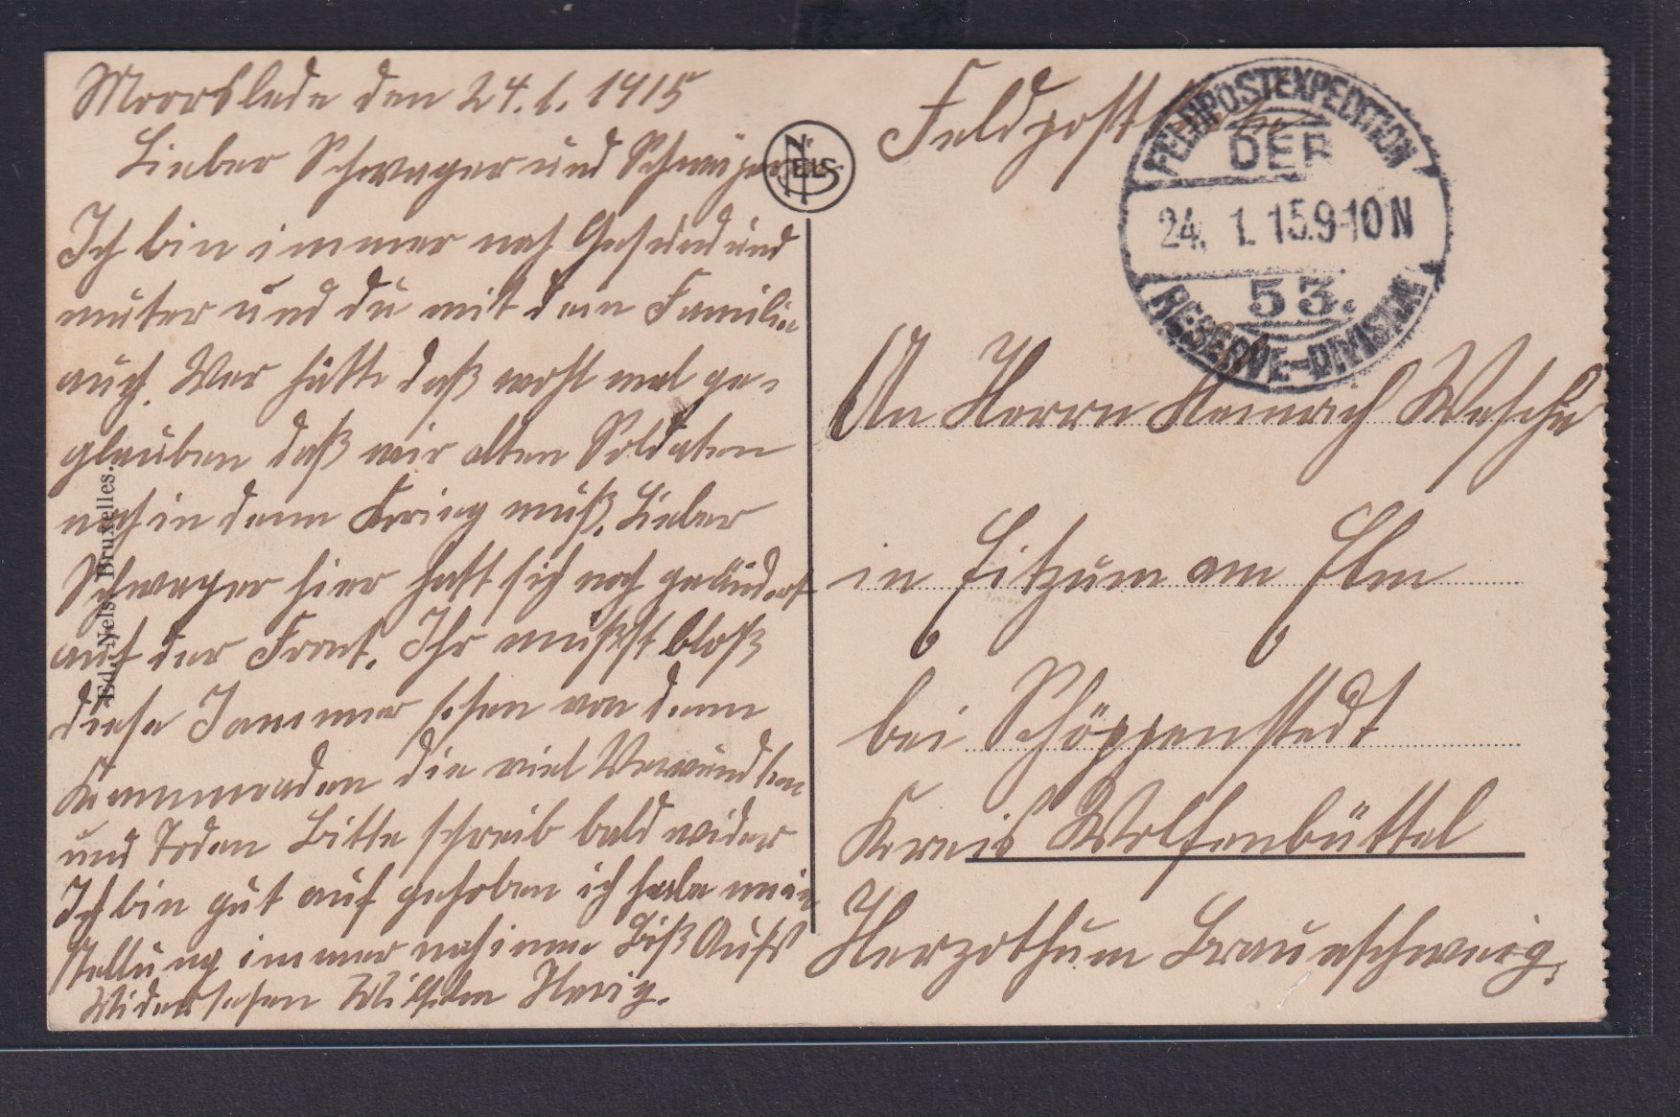 Moorslede den 24.1.1915
Lieber Schwager und Schwäger
Ich bin immer noch Gesund und
muter und du mit dein Familie
auch. Wer hätte daß wohl mal ge-
glauben daß wir alten Soldaten
noch in denn Krieg muß. Lieber
Schwager hier hatt sich noch geändert
auf der Front. Ihr mußst bloß
diese Jammer sehen von denn
Kammeraden die viel Verwundten
und Toden Bitte schreib bald wider
Ich bin gut auf gehoben ich habe mein
stellung immer noch inne Biß Aufs
Widersehen Wilhelm Herig.
Ed. Nels, Bruxelles.
NELS
Feldpost
FELDPOSTEXPEDITION
DER
24. 1. 15.9-10N
53.
RESERVE-DIVISION
An Herrn Heinrich Wesche
in Eitzum am Elm
bei Schöppenstedt
Kreis Wolfenbüttel
Herzothum Braunschweig.